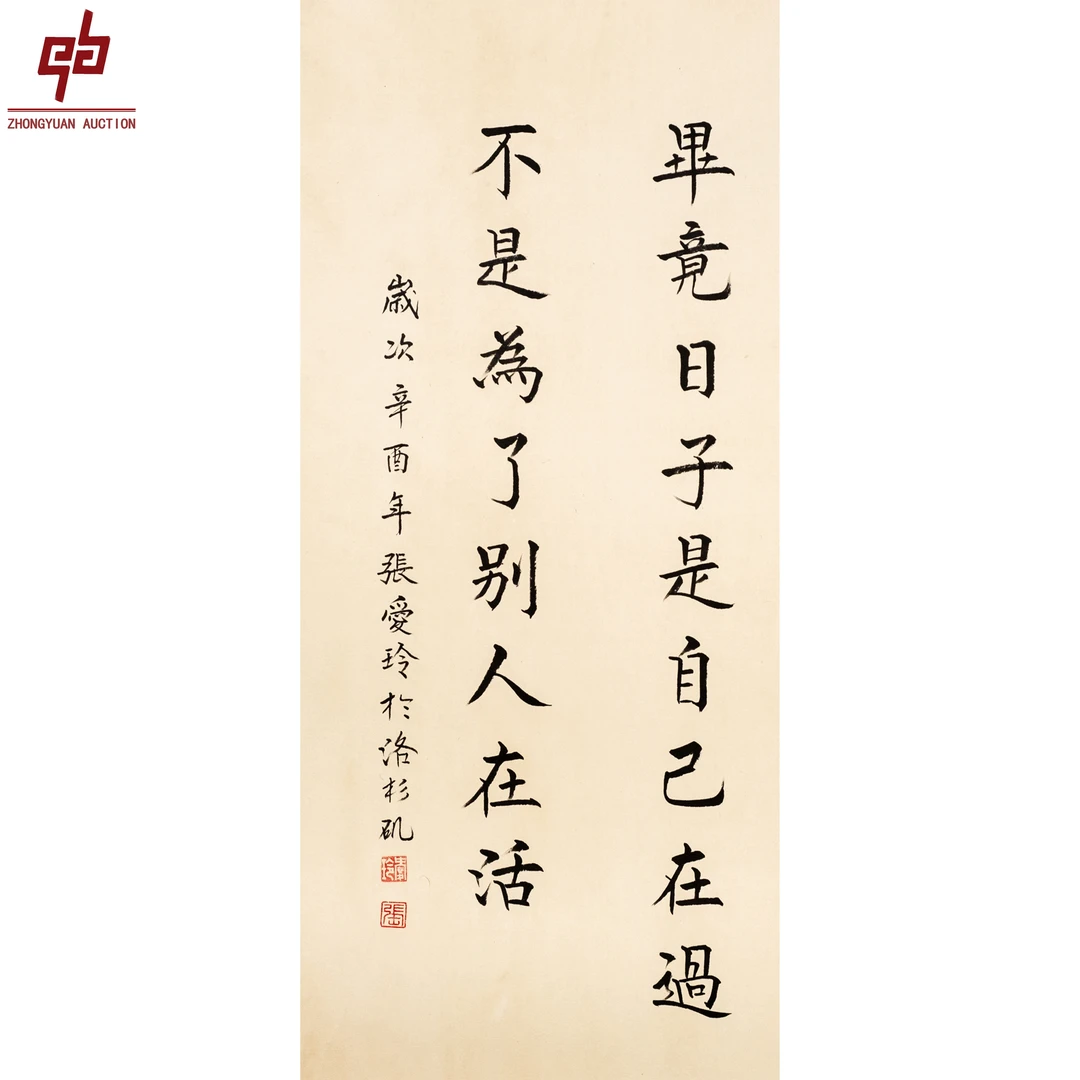 ZHONGYUAN AUCTION
畢竟日子是自己在過
不是為了别人在活
歲次辛酉年張愛玲於洛杉矶
愛玲
張